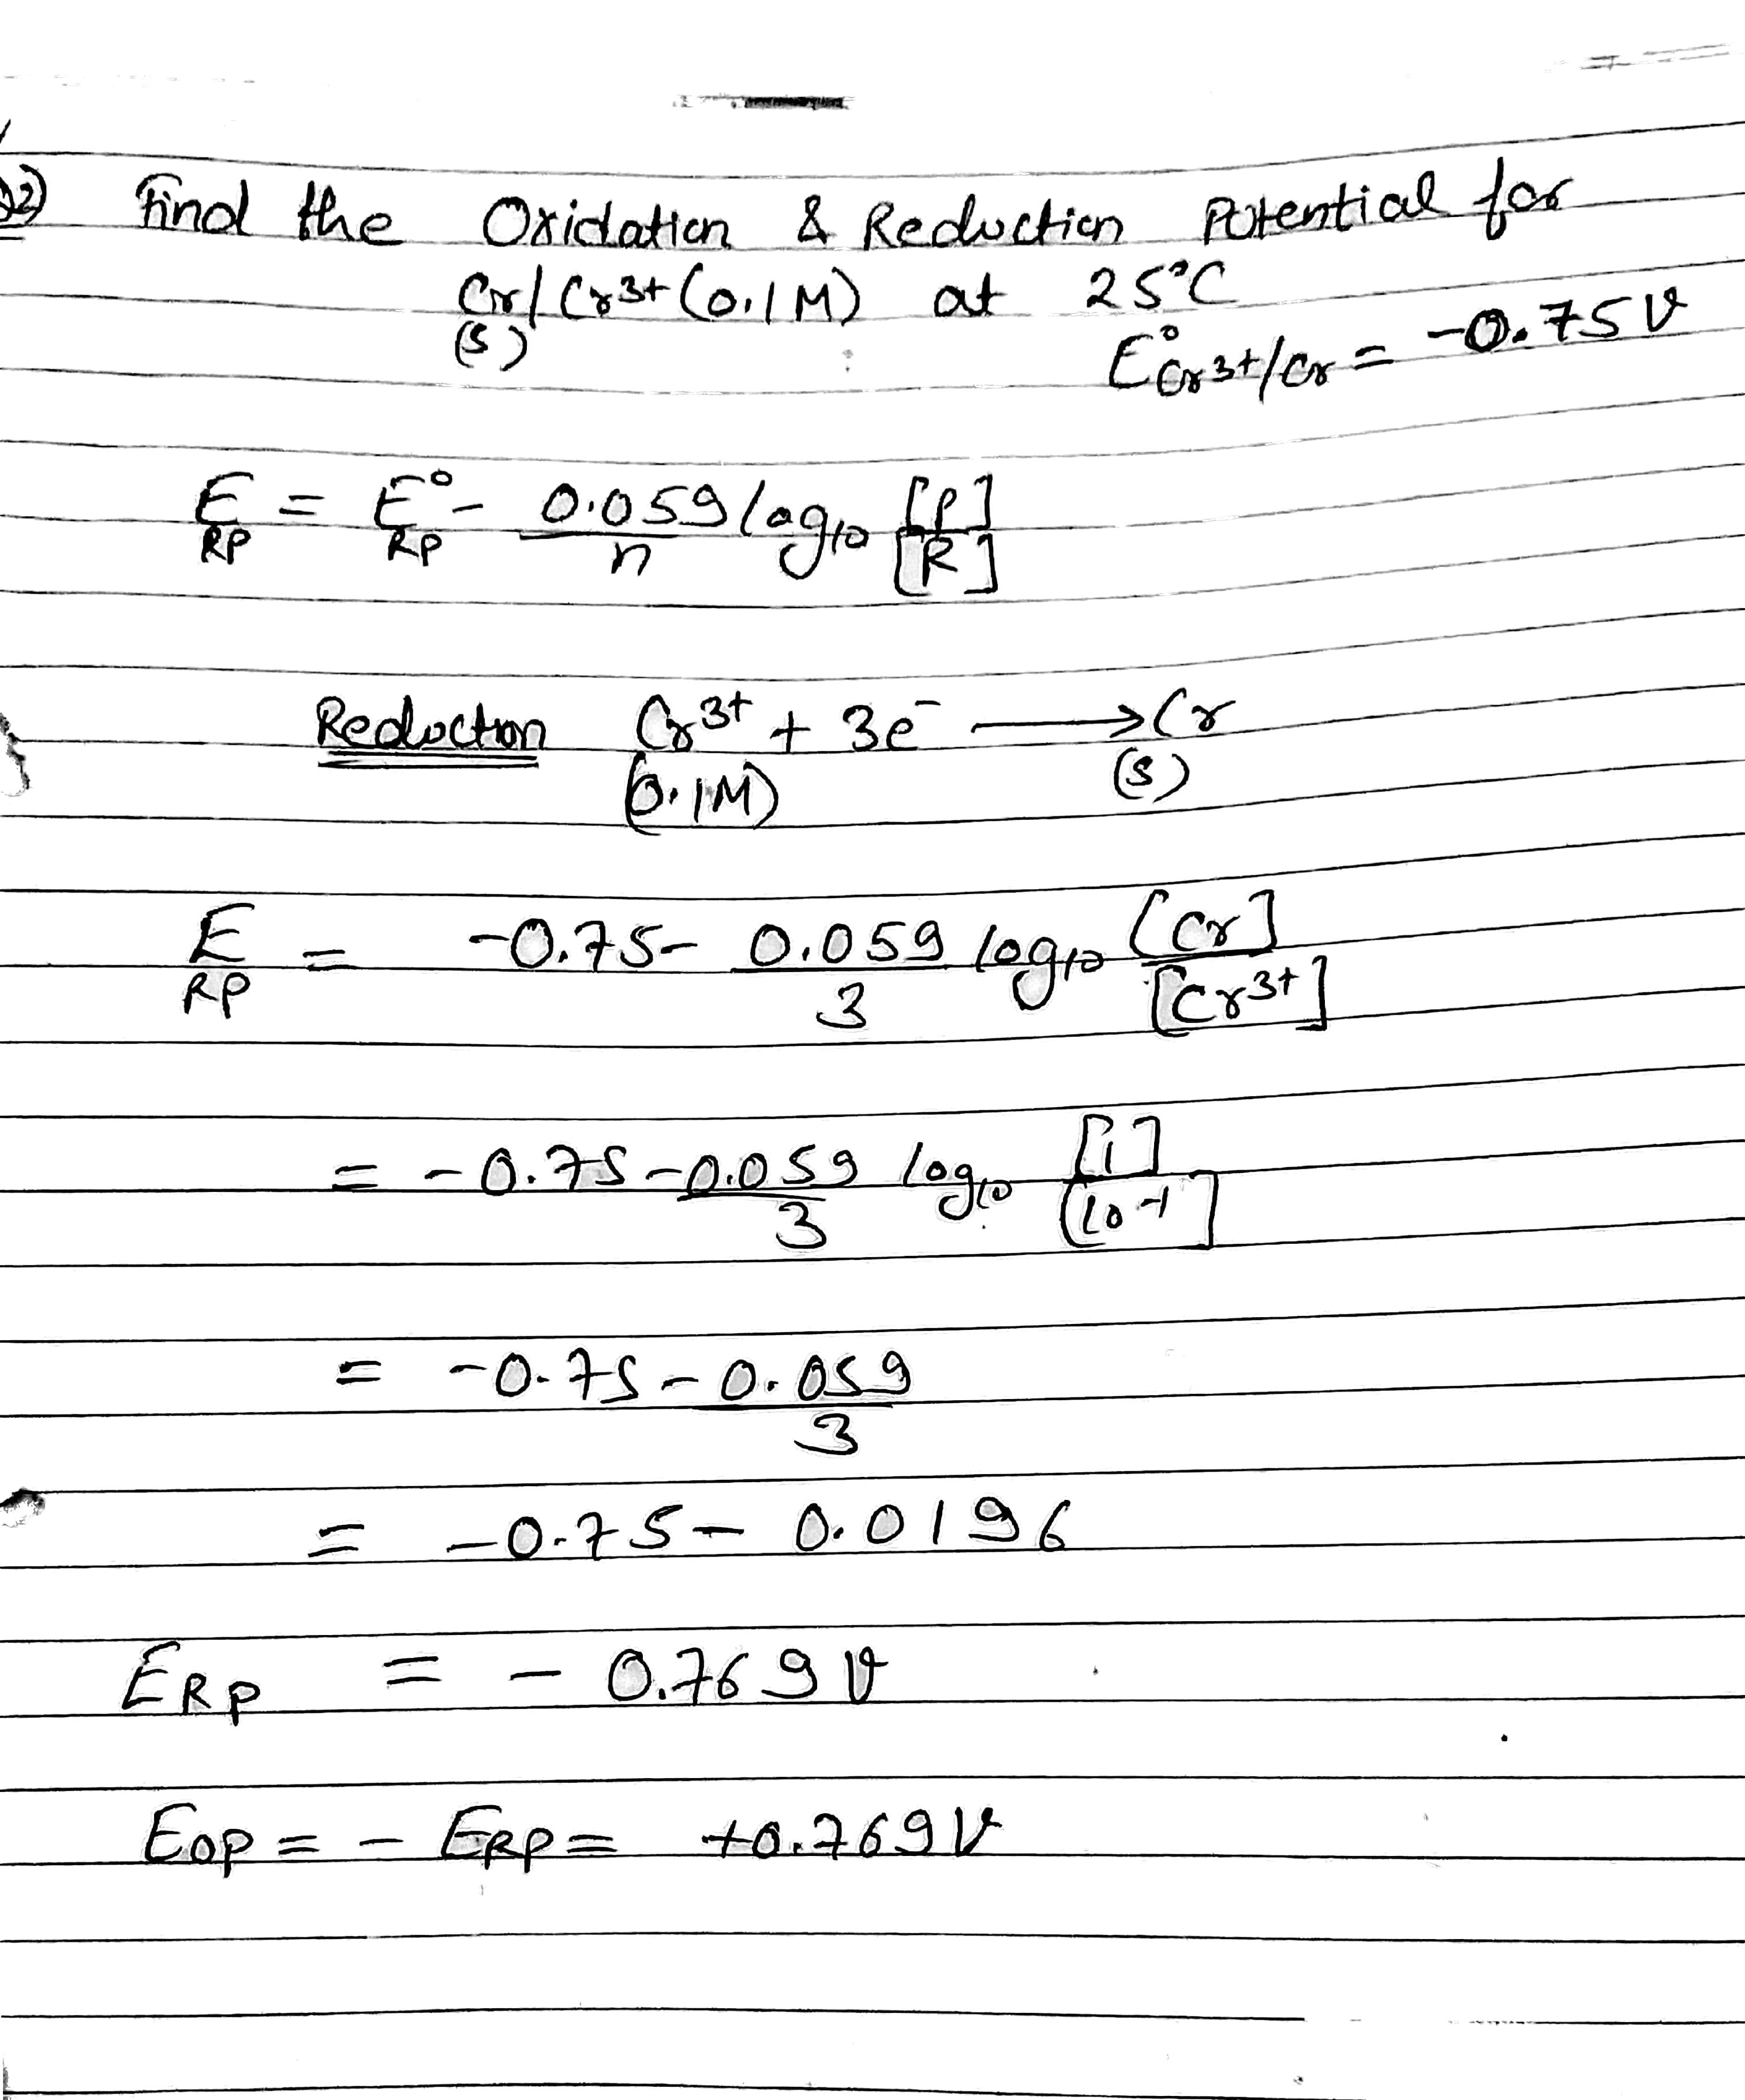 Q2) Find the Oxidation & Reduction Potential for
Cr(s)/Cr3+(0.1M) at 25°C
E°Cr3+/Cr = -0.75V
E RP = E° RP - 0.059/n log10 [P]/[R]
Reduction Cr3+ + 3e- → Cr
(0.1M) (s)
E RP = -0.75 - 0.059/3 log10 [Cr]/[Cr3+]
= -0.75 - 0.059/3 log10 [1]/[10-1]
= -0.75 - 0.059/3
= -0.75 - 0.0196
ERP = - 0.769V
EOP = - ERP = +0.769V